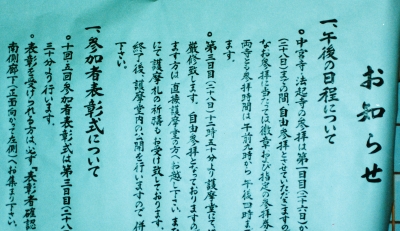 お知らせ
一、午後の日程について
○中宮寺・法起寺の参拝は第一日目(二十六日)か
(二十八日)までの間、自由参拝とさせていただきますの
なお参拝に当たっては徽章および指定の参拝券
両寺とも参拝時間は午前九時から午後四時ま
ます。
○第三日目(二十八日)二時五十分より護摩堂に
厳修致します。自由参拝となっておりますの
ます方は直接護摩堂の方へお越し下さい。また
にて護摩札の祈祷もお受け致しております。
終了後、護摩堂内の公開を行いますので、併
下さい。
一、参加者表彰式について
○十回、五回参加者表彰式は第三日目(二十八
三十分より行います。
○表彰を受けられる方は必ず「表彰者確認
南側廊下(正面向かって左側)へお集まり下さい。